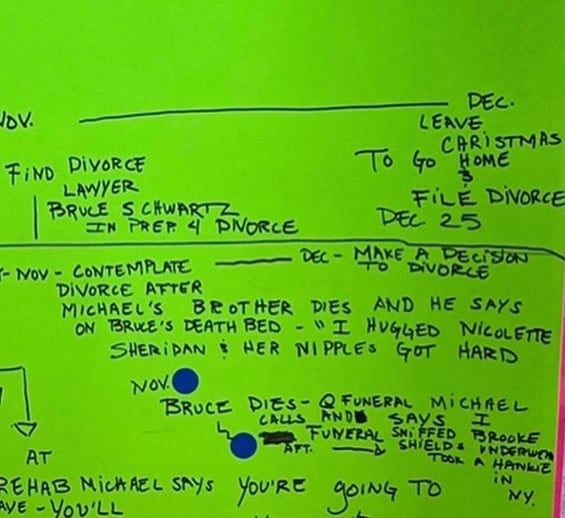 NOV. DEC.
LEAVE
CHRISTMAS
TO GO HOME
&
FIND DIVORCE
LAWYER
FILE DIVORCE
BRUCE SCHWARTZ
DEC 25
IN PREP. 4 DIVORCE
T-NOV - CONTEMPLATE DEC - MAKE A DECISION
TO DIVORCE
DIVORCE AFTER
MICHAEL'S BROTHER DIES AND HE SAYS
ON BRUCE'S DEATH BED - "I HUGGED NICOLETTE
SHERIDAN & HER NIPPLES GOT HARD
NOV.
BRUCE DIES - @ FUNERAL MICHAEL
CALLS AND SAYS I
FUNERAL SNIFFED BROOKE
AFT. SHIELDS UNDERWEA
TOOK A HANKIE
AT
IN
REHAB MICHAEL SAYS YOU'RE GOING TO
NY.
AVE - YOU'LL